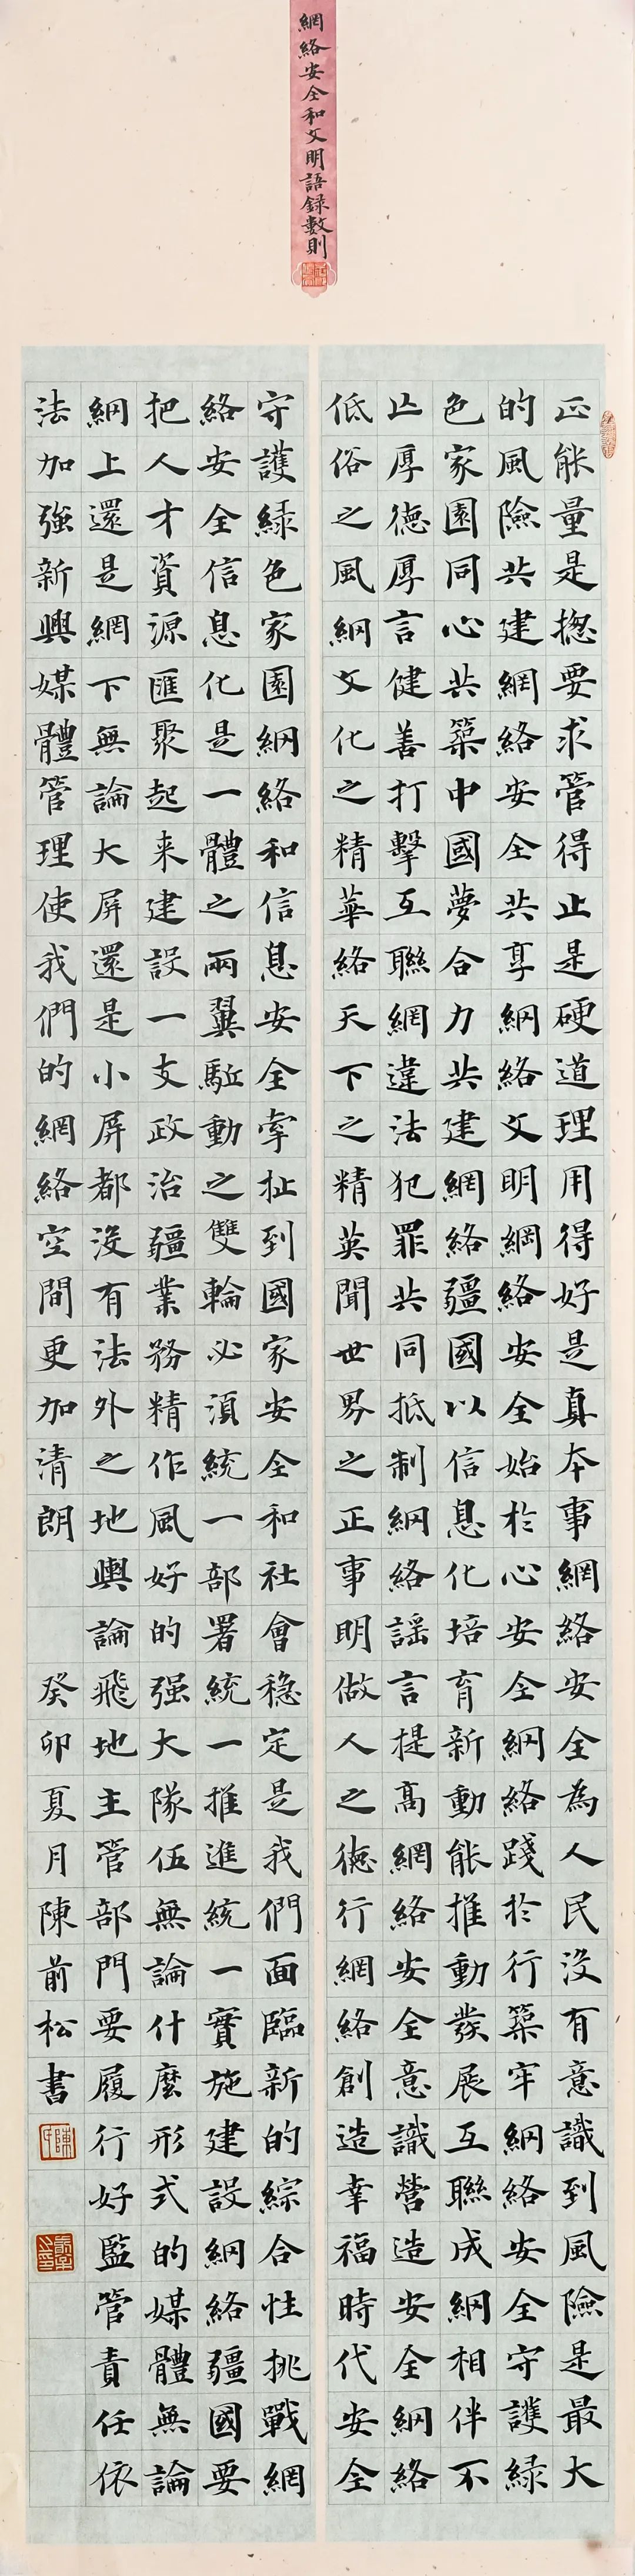 網絡安全和文明語録數則
正能量是揔要求管得止是硬道理用得好是真本事網絡安全為人民没有意識到風險是最大
的風險共建網絡安全共享網絡文明網絡安全始於心安全網絡踐於行築牢網絡安全守護緑
色家園同心共築中國夢合力共建網絡疆國以信息化培育新動能推動發展互聯成網相伴不
止厚德厚言健善打擊互聯網違法犯罪共同抵制網絡謡言提高網絡安全意識營造安全網絡
低俗之風網文化之精華絡天下之精英聞世界之正事明做人之德行網絡創造幸福時代安全
守護緑色家園網絡和信息安全牽扯到國家安全和社會穩定是我們面臨新的綜合性挑戰網
絡安全信息化是一體之兩翼駈動之雙輪必須統一部署統一推進統一實施建設網絡疆國要
把人才資源匯聚起来建設一支政治疆業務精作風好的强大隊伍無論什麼形式的媒體無論
網上還是網下無論大屏還是小屏都没有法外之地輿論飛地主管部門要履行好監管責任依
法加強新興媒體管理使我們的網絡空間更加清朗 癸卯夏月陳前松書